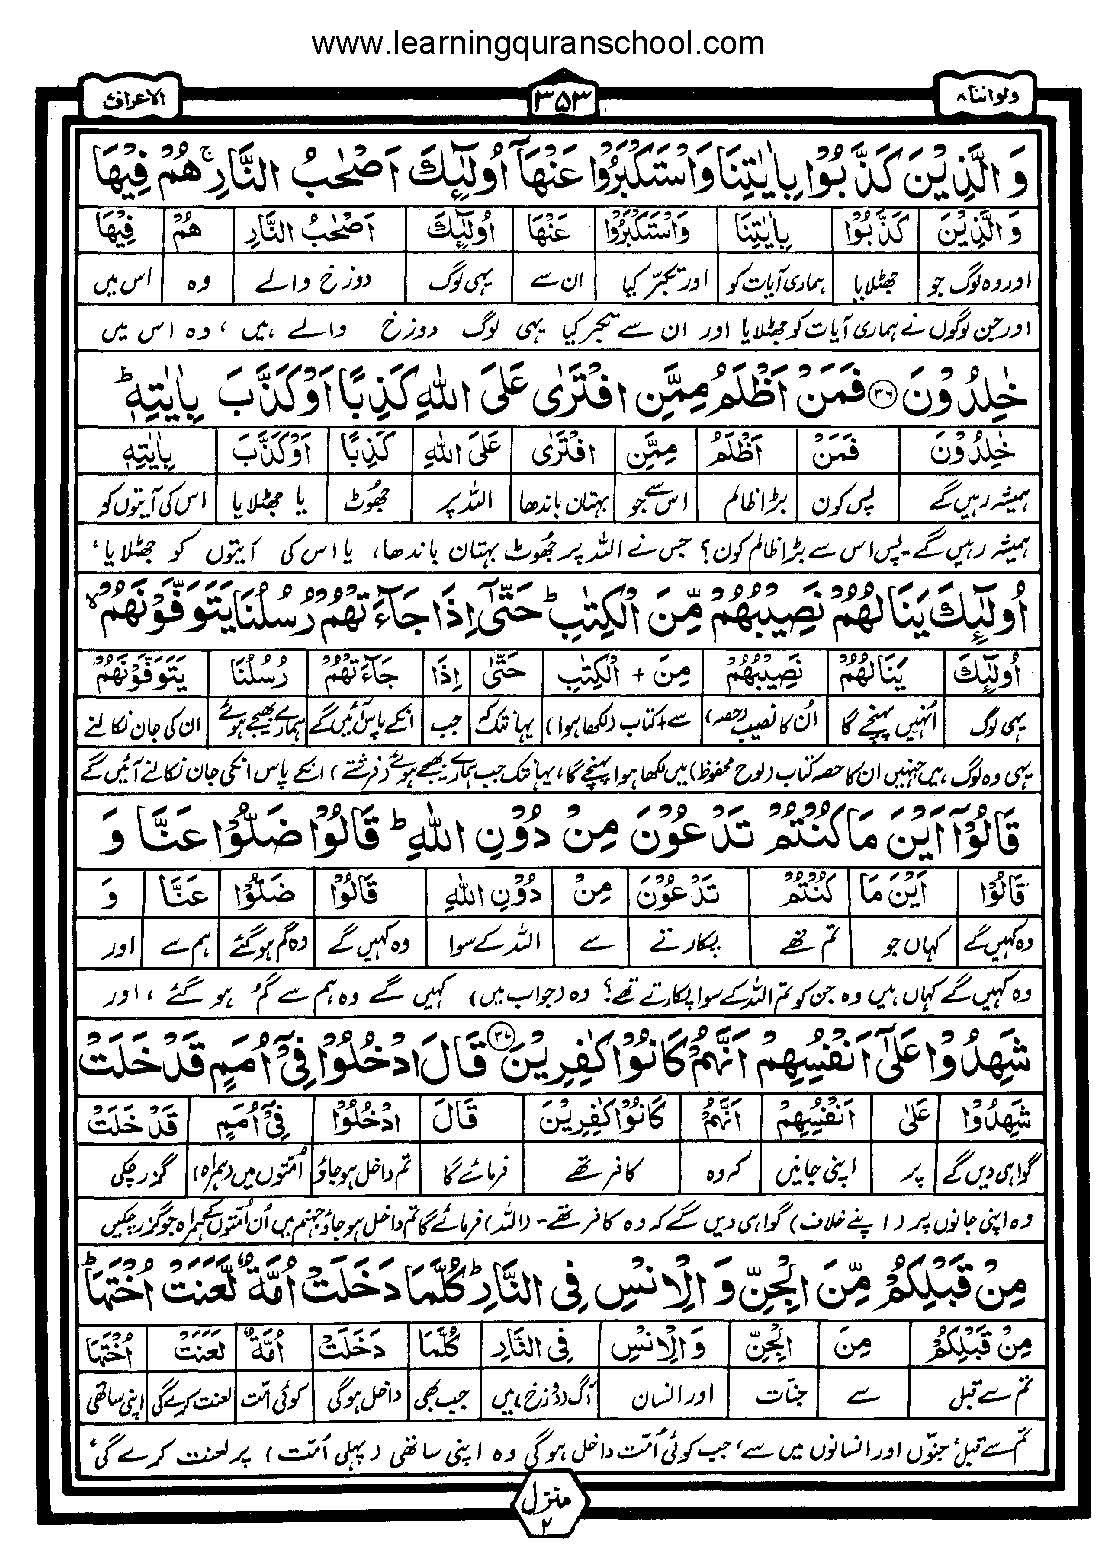 www.learningquranschool.com
ولواننا ۸ ۳۵۳ الاعراف
وَالَّذِيْنَ كَذَّبُوْا بِاٰيٰتِنَا وَاسْتَكْبَرُوْا عَنْهَآ اُولٰٓئِكَ اَصْحٰبُ النَّارِ ۚ هُمْ فِيْهَا
وَالَّذِيْنَ كَذَّبُوْا بِاٰيٰتِنَا وَاسْتَكْبَرُوْا عَنْهَا اُولٰٓئِكَ اَصْحٰبُ النَّارِ هُمْ فِيْهَا
اور وہ لوگ جو جھٹلایا ہماری آیات کو اور تکبّر کیا ان سے یہی لوگ دوزخ والے وہ اس میں
اور جن لوگوں نے ہماری آیات کو جھٹلایا اور ان سے تکبر کیا یہی لوگ دوزخ والے ہیں، وہ اس میں
خٰلِدُوْنَ ۝۳۶ فَمَنْ اَظْلَمُ مِمَّنِ افْتَرٰى عَلَى اللّٰهِ كَذِبًا اَوْ كَذَّبَ بِاٰيٰتِهٖ ؕ
خٰلِدُوْنَ فَمَنْ اَظْلَمُ مِمَّنِ افْتَرٰى عَلَى اللّٰهِ كَذِبًا اَوْ كَذَّبَ بِاٰيٰتِهٖ
ہمیشہ رہیں گے پس کون بڑا ظالم اس سے جو بہتان باندھا اللہ پر جھوٹ یا جھٹلایا اس کی آیتوں کو
ہمیشہ رہیں گے۔ پس اس سے بڑا ظالم کون؟ جس نے اللہ پر جھوٹ بہتان باندھا، یا اس کی آیتوں کو جھٹلایا،
اُولٰٓئِكَ يَنَالُهُمْ نَصِيْبُهُمْ مِّنَ الْكِتٰبِ ؕ حَتّٰٓى اِذَا جَآءَتْهُمْ رُسُلُنَا يَتَوَفَّوْنَهُمْ ۙ
اُولٰٓئِكَ يَنَالُهُمْ نَصِيْبُهُمْ مِنَ + الْكِتٰبِ حَتّٰى اِذَا جَآءَتْهُمْ رُسُلُنَا يَتَوَفَّوْنَهُمْ
یہی لوگ اُنہیں پہنچے گا اُن کا نصیب (حصہ) سے + کتاب (لکھا ہوا) یہانتک کہ جب انکے پاس آئیں گے ہمارے بھیجے ہوئے ان کی جان نکالنے
یہی وہ لوگ ہیں جنہیں ان کا حصہ کتاب (لوح محفوظ) میں لکھا ہوا پہنچے گا، یہانتک جب ہمارے بھیجے ہوئے (فرشتے) انکے پاس انکی جان نکالنے آئیں گے
قَالُوْٓا اَيْنَ مَا كُنْتُمْ تَدْعُوْنَ مِنْ دُوْنِ اللّٰهِ ؕ قَالُوْا ضَلُّوْا عَنَّا وَ
قَالُوْا اَيْنَ مَا كُنْتُمْ تَدْعُوْنَ مِنْ دُوْنِ اللّٰهِ قَالُوْا ضَلُّوْا عَنَّا وَ
وہ کہیں گے کہاں جو تم تھے پکارتے سے اللہ کے سوا وہ کہیں گے وہ گم ہو گئے ہم سے اور
وہ کہیں گے کہاں ہیں وہ جن کو تم اللہ کے سوا پکارتے تھے؟ وہ (جواب میں) کہیں گے وہ ہم سے گم ہو گئے، اور
شَهِدُوْا عَلٰٓى اَنْفُسِهِمْ اَنَّهُمْ كَانُوْا كٰفِرِيْنَ ۝۳۷ قَالَ ادْخُلُوْا فِيْٓ اُمَمٍ قَدْ خَلَتْ
شَهِدُوْا عَلٰى اَنْفُسِهِمْ اَنَّهُمْ كَانُوْا كٰفِرِيْنَ قَالَ ادْخُلُوْا فِيْٓ اُمَمٍ قَدْ خَلَتْ
گواہی دیں گے پر اپنی جانیں کہ وہ کافر تھے فرمائے گا تم داخل ہو جاؤ اُمتوں میں (ہمراہ) گزر چکی
وہ اپنی جانوں پر (اپنے خلاف) گواہی دیں گے کہ وہ کافر تھے۔ (اللہ) فرمائے گا تم داخل ہو جاؤ جہنم میں اُن اُمتوں کے ہمراہ جو گزر چکیں
مِنْ قَبْلِكُمْ مِّنَ الْجِنِّ وَالْاِنْسِ فِي النَّارِ ؕ كُلَّمَا دَخَلَتْ اُمَّةٌ لَّعَنَتْ اُخْتَهَا ؕ
مِنْ قَبْلِكُمْ مِنَ الْجِنِّ وَالْاِنْسِ فِي النَّارِ كُلَّمَا دَخَلَتْ اُمَّةٌ لَعَنَتْ اُخْتَهَا
تم سے قبل سے جنّات اور انسان آگ (دوزخ) میں جب بھی داخل ہوگی کوئی امّت لعنت کرے گی اپنی ساتھی
تم سے قبل، جنّوں اور انسانوں میں سے، جب کوئی اُمّت داخل ہوگی وہ اپنی ساتھی (پہلی اُمّت) پر لعنت کرے گی،
منزل ۲